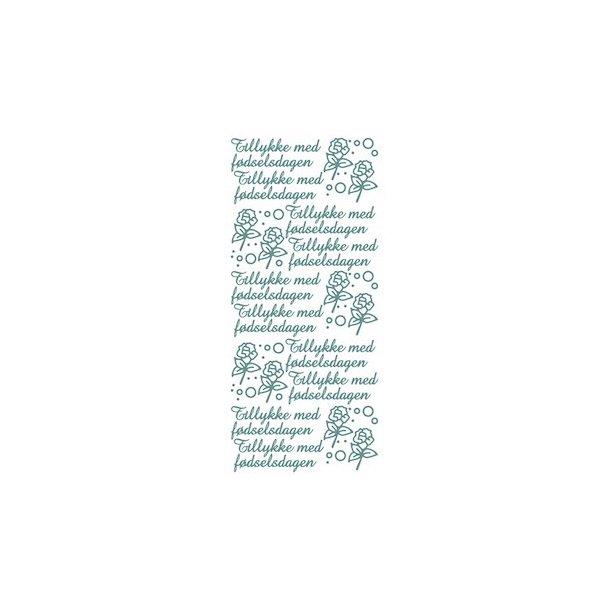 Tillykke med
fødselsdagen
Tillykke med
fødselsdagen
Tillykke med
fødselsdagen
Tillykke med
fødselsdagen
Tillykke med
fødselsdagen
Tillykke med
fødselsdagen
Tillykke med
fødselsdagen
Tillykke med
fødselsdagen
Tillykke med
fødselsdagen
Tillykke med
fødselsdagen